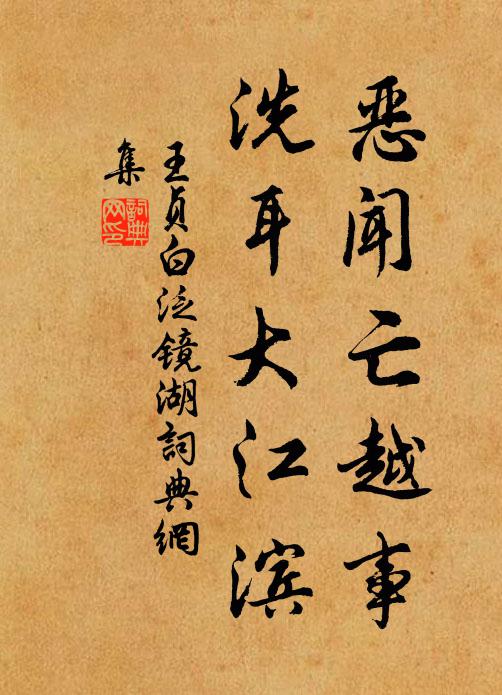 恶闻亡越事
洗耳大江滨
王贞白泛镜湖詞典網
集
詞典
网印